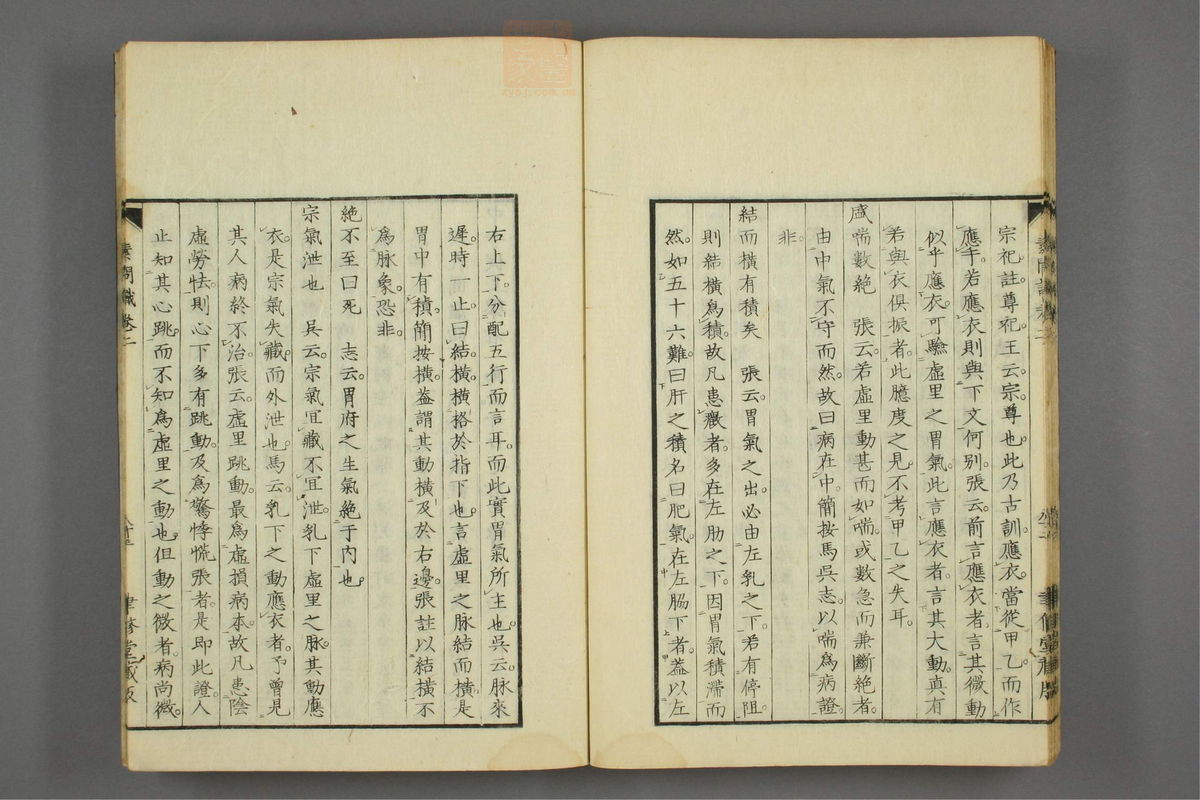 宗祀註尊祀王云宗尊也此乃古訓應衣當從甲乙而作
應手若應衣則與下文何別張云前言應衣者言其微動
似乎應衣可驗虛里之胃氣此言應衣者言其大動真有
若與衣俱振者此臆度之見不考甲乙之失耳
盛喘數絶　張云若虛里動甚而如喘或數急而兼斷絶者
由中氣不守而然故曰病在中簡按馬吳志以喘爲病證
非
結而橫有積矣　張云胃氣之出必由左乳之下若有停阻
則結橫爲積故凡患癥者多在左肋之下因胃氣積滯而
然如五十六難曰肝之積名曰肥氣在左脇下者蓋以左
右上下分配五行而言耳而此實胃氣所主也吳云脉來
遲時一止曰結橫橫挌於指下也言虛里之脉結而橫是
胃中有積簡按橫蓋謂其動橫及於右邊張註以結橫不
爲脉象恐非
絶不至曰死　志云胃府之生氣絶于內也
宗氣泄也　吳云宗氣宜藏不宜泄乳下虛里之脉其動應
衣是宗氣失藏而外泄也馬云乳下之動應衣者予曾見
其人病終不治張云虛里跳動最爲虛損病本故凡患陰
虛勞怯則心下多有跳動及爲驚悸慌張者是即此證人
止知其心跳而不知爲虛里之動也但動之微者病尚微
素問識卷二
聿修堂藏版